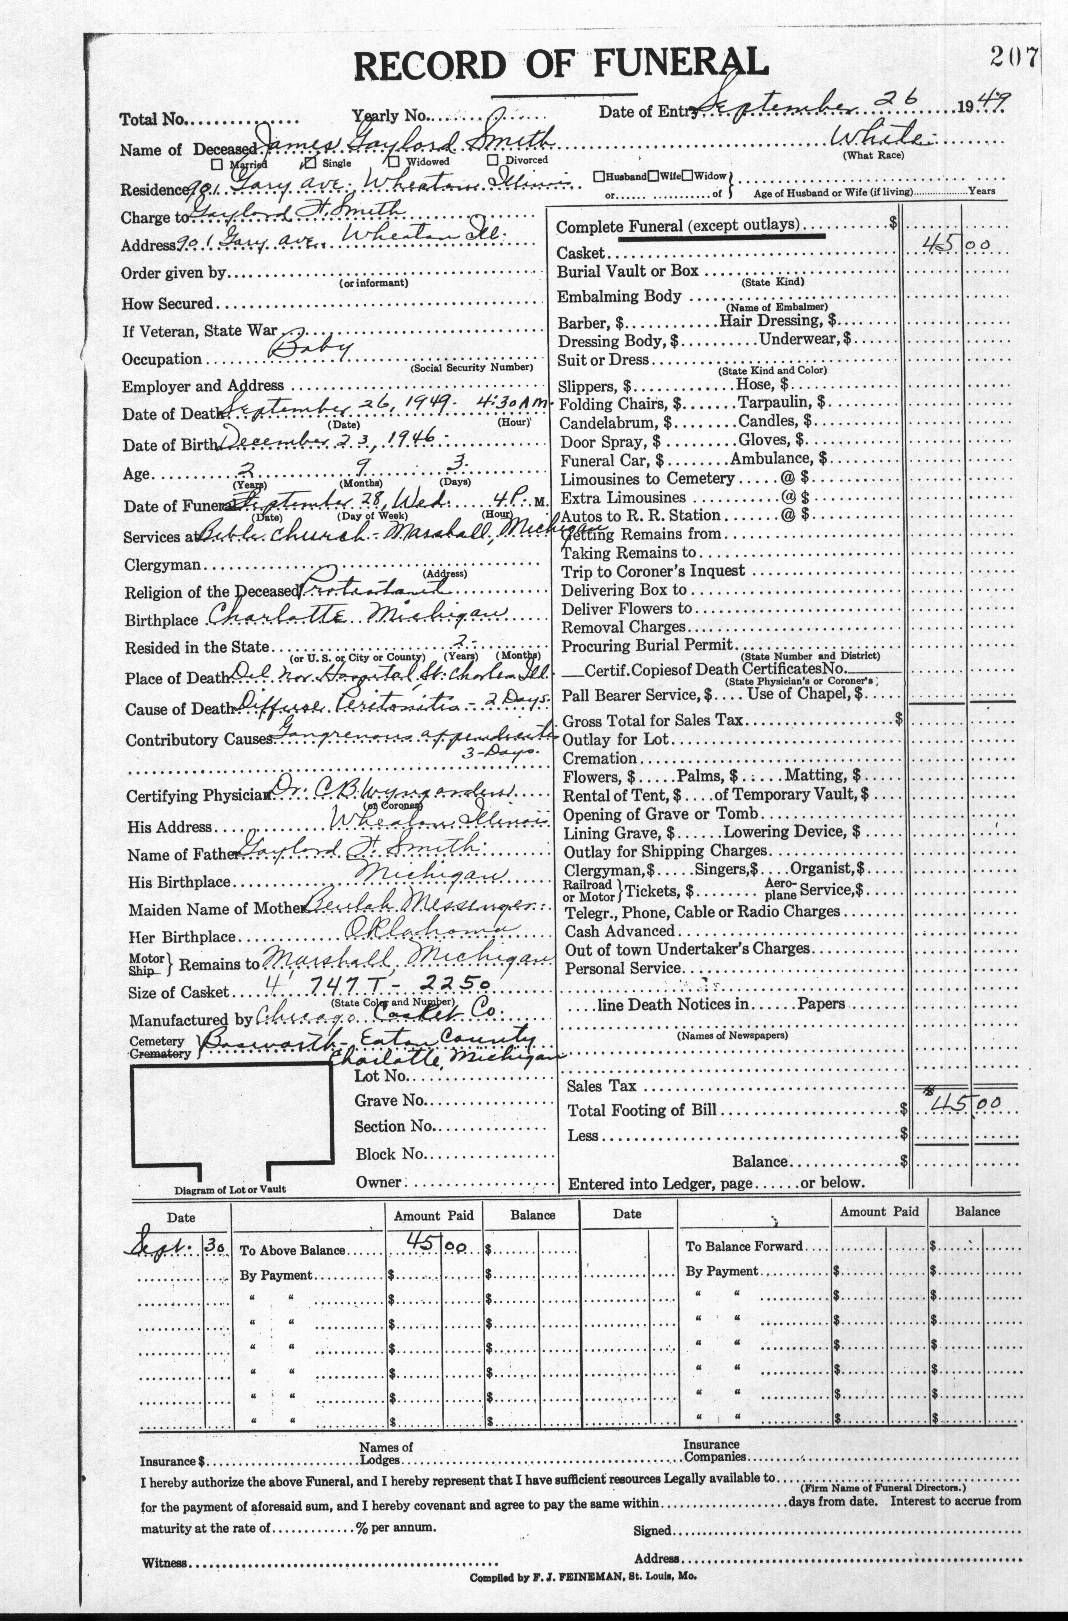 RECORD OF FUNERAL
207
Total No. Yearly No. Date of Entry September 26 1949
Name of Deceased James Gaylord Smith White
Married Single Widowed Divorced (What Race)
Residence 901 Gary ave. Wheaton Illinois Husband Wife Widow
or of Age of Husband or Wife (if living) Years
Charge to Gaylord F. Smith
Address 901 Gary ave. Wheaton Ill.
Order given by
(or informant)
How Secured
If Veteran, State War
Occupation Baby
(Social Security Number)
Employer and Address
Date of Death September 26, 1949. 4:30 A M.
(Date) (Hour)
Date of Birth December 23, 1946.
Age 2 9 3.
(Years) (Months) (Days)
Date of Funeral September 28, Wed. 4 P. M.
(Date) (Day of Week) (Hour)
Services at Bible church - Marshall, Michigan
Clergyman
(Address)
Religion of the Deceased Protestant
Birthplace Charlotte Michigan
Resided in the State 2
(or U. S. or City or County) (Years) (Months)
Place of Death Del. Nor. Hospital, St. Charles Ill.
Cause of Death Diffuse Peritonitis - 2 Days.
Contributory Causes Gangrenous appendicitis
3-Days.
Certifying Physician Dr. C. B.
(or Coroner)
His Address Wheaton, Illinois
Name of Father Gaylord F. Smith
His Birthplace Michigan
Maiden Name of Mother Beulah Messenger
Her Birthplace Oklahoma
Motor
Ship } Remains to Marshall, Michigan
Size of Casket 4' 747 T - 2250
(State Color and Number)
Manufactured by Chicago Casket Co.
Cemetery
Crematory } Bosworth - Eaton County
Charlotte, Michigan
Lot No.
Grave No.
Section No.
Block No.
Owner
Diagram of Lot or Vault
Complete Funeral (except outlays) $
Casket 45 00
Burial Vault or Box
(State Kind)
Embalming Body
(Name of Embalmer)
Barber, $ Hair Dressing, $
Dressing Body, $ Underwear, $
Suit or Dress
(State Kind and Color)
Slippers, $ Hose, $
Folding Chairs, $ Tarpaulin, $
Candelabrum, $ Candles, $
Door Spray, $ Gloves, $
Funeral Car, $ Ambulance, $
Limousines to Cemetery @ $
Extra Limousines @ $
Autos to R. R. Station @ $
Getting Remains from
Taking Remains to
Trip to Coroner's Inquest
Delivering Box to
Deliver Flowers to
Removal Charges
Procuring Burial Permit
(State Number and District)
Certif. Copies of Death Certificates No.
(State Physician's or Coroner's)
Pall Bearer Service, $ Use of Chapel, $
Gross Total for Sales Tax $
Outlay for Lot
Cremation
Flowers, $ Palms, $ Matting, $
Rental of Tent, $ of Temporary Vault, $
Opening of Grave or Tomb
Lining Grave, $ Lowering Device, $
Outlay for Shipping Charges
Clergyman, $ Singers, $ Organist, $
Railroad or Motor } Tickets, $ Aero-plane Service, $
Telegr., Phone, Cable or Radio Charges
Cash Advanced
Out of town Undertaker's Charges
Personal Service
line Death Notices in Papers
(Names of Newspapers)
Sales Tax
Total Footing of Bill $ $45 00
Less $
Balance $
Entered into Ledger, page or below.
Date Amount Paid Balance Date Amount Paid Balance
Sept. 30 To Above Balance 45 00 $ To Balance Forward $
By Payment $ $ By Payment $ $
" " $ $ " " $ $
" " $ $ " " $ $
" " $ $ " " $ $
" " $ $ " " $ $
" " $ $ " " $ $
" " $ $ " " $ $
Insurance $ Names of Lodges Insurance Companies
I hereby authorize the above Funeral, and I hereby represent that I have sufficient resources Legally available to
(Firm Name of Funeral Directors.)
for the payment of aforesaid sum, and I hereby covenant and agree to pay the same within days from date. Interest to accrue from
maturity at the rate of % per annum. Signed
Witness Address
Compiled by F. J. FEINEMAN, St. Louis, Mo.